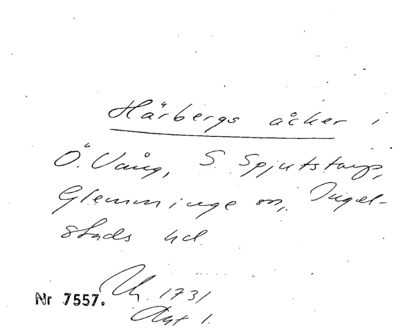 Härbergs åcker i
Ö. Vång, S. Spjutstorp,
Glemminge sn, Ingel-
stads hd
Nr 7557. Uh. 1731
Akt 1.